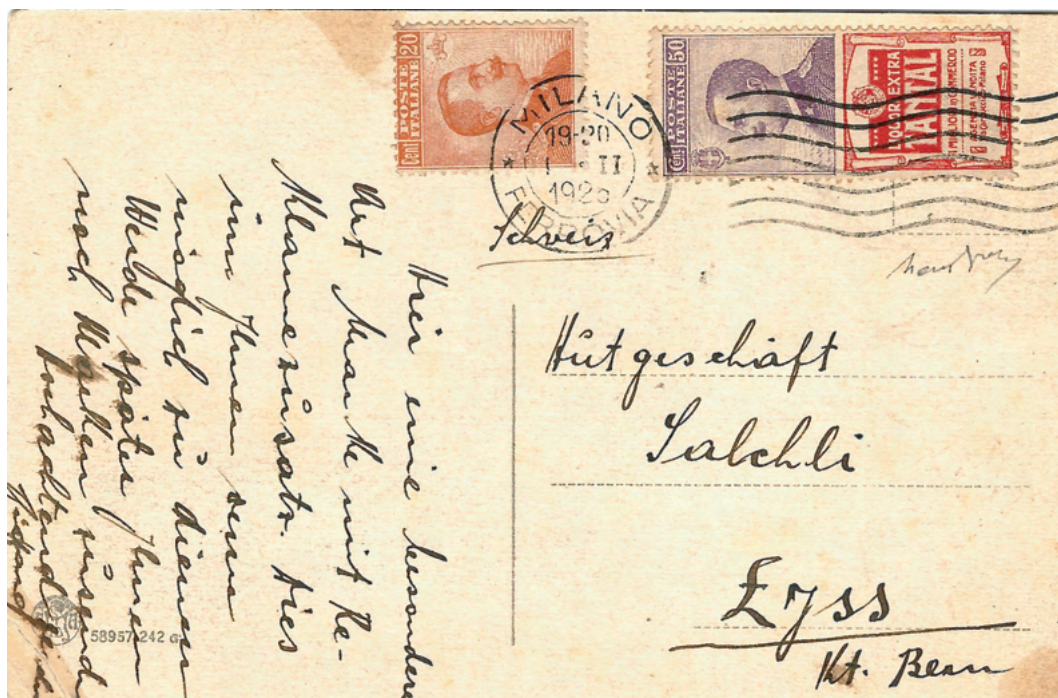 Cent POSTE ITALIANE 20
Cent POSTE ITALIANE 50
LIQUOR EXTRA
TANTAL
MILANO
19-20
II
FERROVIA
Schweiz
Hutgeschäft
Salchli
Lyss
Kt. Bern
Hier eine besondere
Art Marke mit Re-
klamezusatz. Dies
um Ihnen
möglich zu dienen
Werde später Ihnen
noch Marken
58957-242